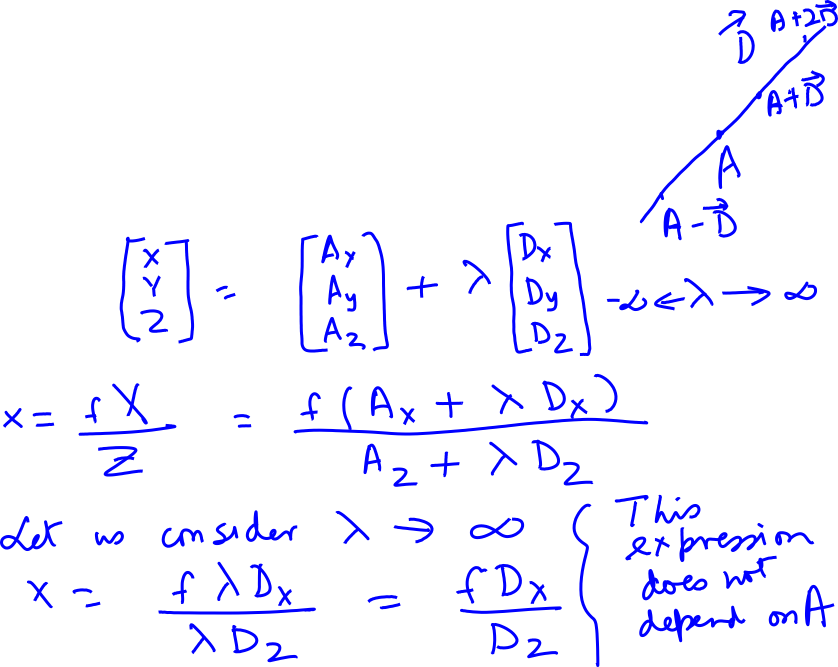 D⃗ A+2D⃗
A+D⃗
A
A-D⃗
[X Y Z] = [Ax Ay Az] + λ [Dx Dy Dz] -∞ ← λ → ∞
x = fX/Z = f(Ax + λDx)/(Az + λDz)
Let us consider λ → ∞
x = fλDx/λDz = fDx/Dz
{ This
expression
does not
depend on A